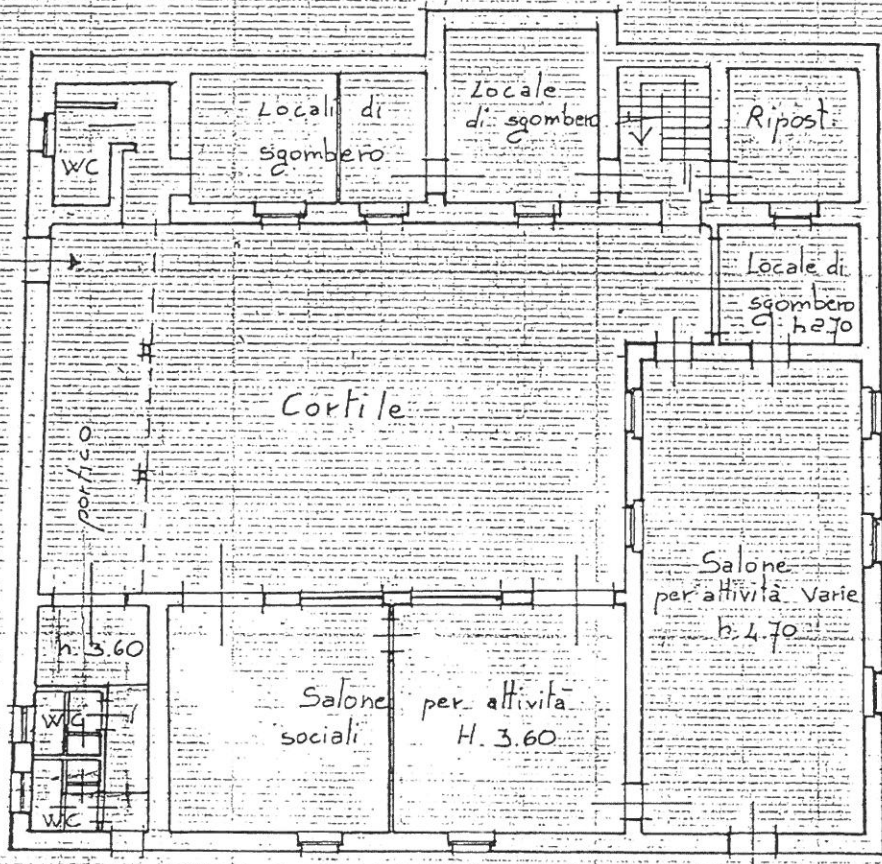 Locali di
sgombero
Locale
di sgombero
Ripost.
WC
Locale di
sgombero
h 2.70
Cortile
portico
Salone
per attività varie
h. 4.70
h. 3.60
WC
WC
Salone per attività
sociali H. 3.60